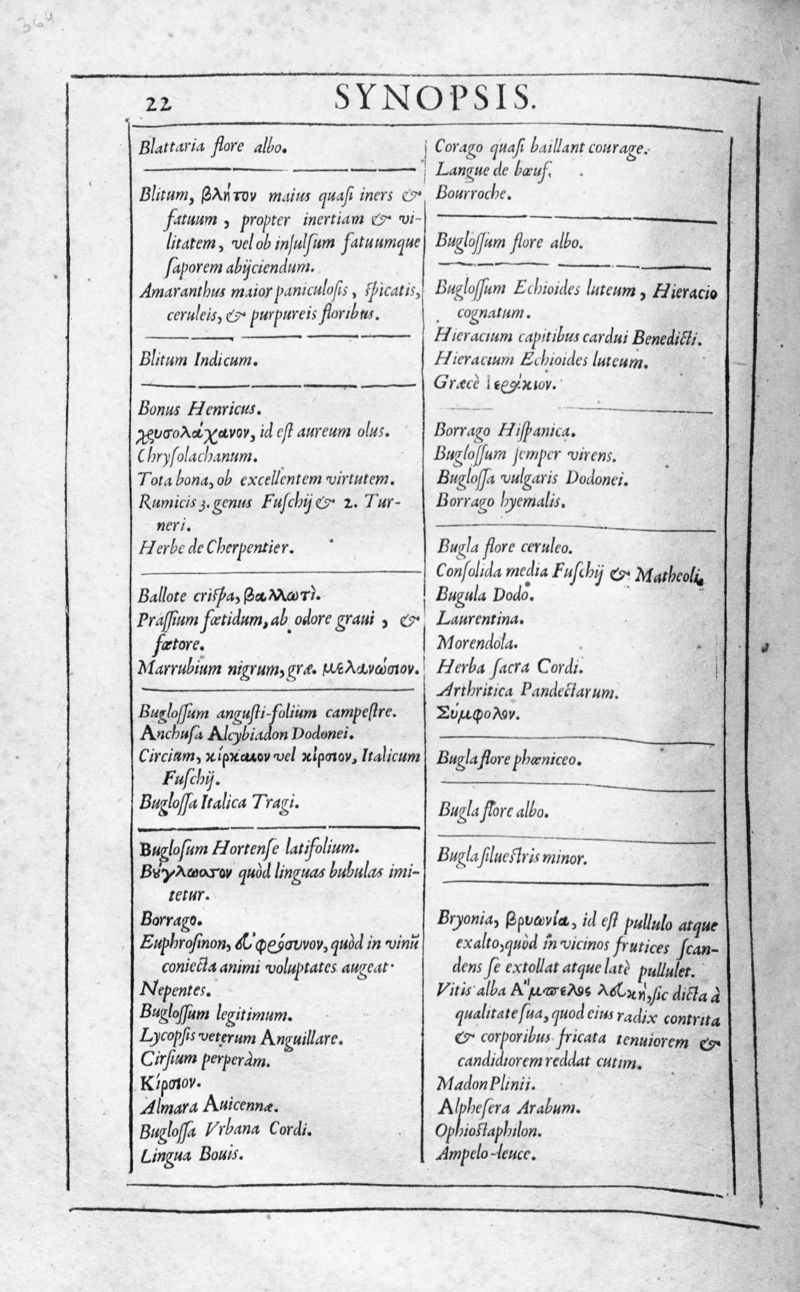 364
22
SYNOPSIS.
Blattaria flore albo.
Blitum, βλῆτον maius quaſi iners &
fatuum, propter inertiam & vi-
litatem, vel ob inſulſum fatuumque
ſaporem abijciendum.
Amaranthus maior paniculoſis, ſpicatis,
ceruleis, & purpureis floribus.
Blitum Indicum.
Bonus Henricus.
χρυσολάχανον, id eſt aureum olus.
Chryſolachanum.
Tota bona, ob excellentem virtutem.
Rumicis 3. genus Fuſchij & 2. Tur-
neri.
Herbe de Cherpentier.
Ballote criſpa, βαλλωτὶ.
Praſſium fœtidum, ab odore graui, &
fœtore.
Marrubium nigrum, græ. μελανώσιον.
Bugloſſum anguſti-folium campeſtre.
Anchuſa Alcybiadon Dodonei.
Circium, κίρκαιον vel κίρσιον, Italicum
Fuſchij.
Bugloſſa Italica Tragi.
Bugloſum Hortenſe latifolium.
Βȣ́γλωσσον quòd linguas bubulas imi-
tetur.
Borrago.
Euphroſinon, ἐυφρόσυνον, quòd in vinũ
coniecta animi voluptates augeat.
Nepentes.
Bugloſſum legitimum.
Lycopſis veterum Anguillare.
Cirſium perperàm.
Κίρσιον.
Almara Auicennæ.
Bugloſſa Vrbana Cordi.
Lingua Bouis.
Corago quaſi baillant courage.
Langue de bœuf.
Bourroche.
Bugloſſum flore albo.
Bugloſſum Echioides luteum, Hieracio
cognatum.
Hieracium capitibus cardui Benedicti.
Hieracium Echioides luteum.
Græcè ἱερᾴκιον.
Borrago Hiſpanica.
Bugloſſum ſemper virens.
Bugloſſa vulgaris Dodonei.
Borrago hyemalis.
Bugla flore ceruleo.
Conſolida media Fuſchij & Matheoli.
Bugula Dodo.
Laurentina.
Morendola.
Herba ſacra Cordi.
Arthritica Pandectarum.
Σύμφολον.
Bugla flore phœniceo.
Bugla flore albo.
Bugla ſilueſtris minor.
Bryonia, βρυωνία, id eſt pullulo atque
exalto, quòd in vicinos frutices ſcan-
dens ſe extollat atque latè pullulet.
Vitis alba Ἄμπελος λευκὴ, ſic dicta à
qualitate ſua, quod eius radix contrita
& corporibus fricata tenuiorem &
candidiorem reddat cutim.
Madon Plinii.
Alpheſera Arabum.
Ophioſtaphilon.
Ampelo-leuce.